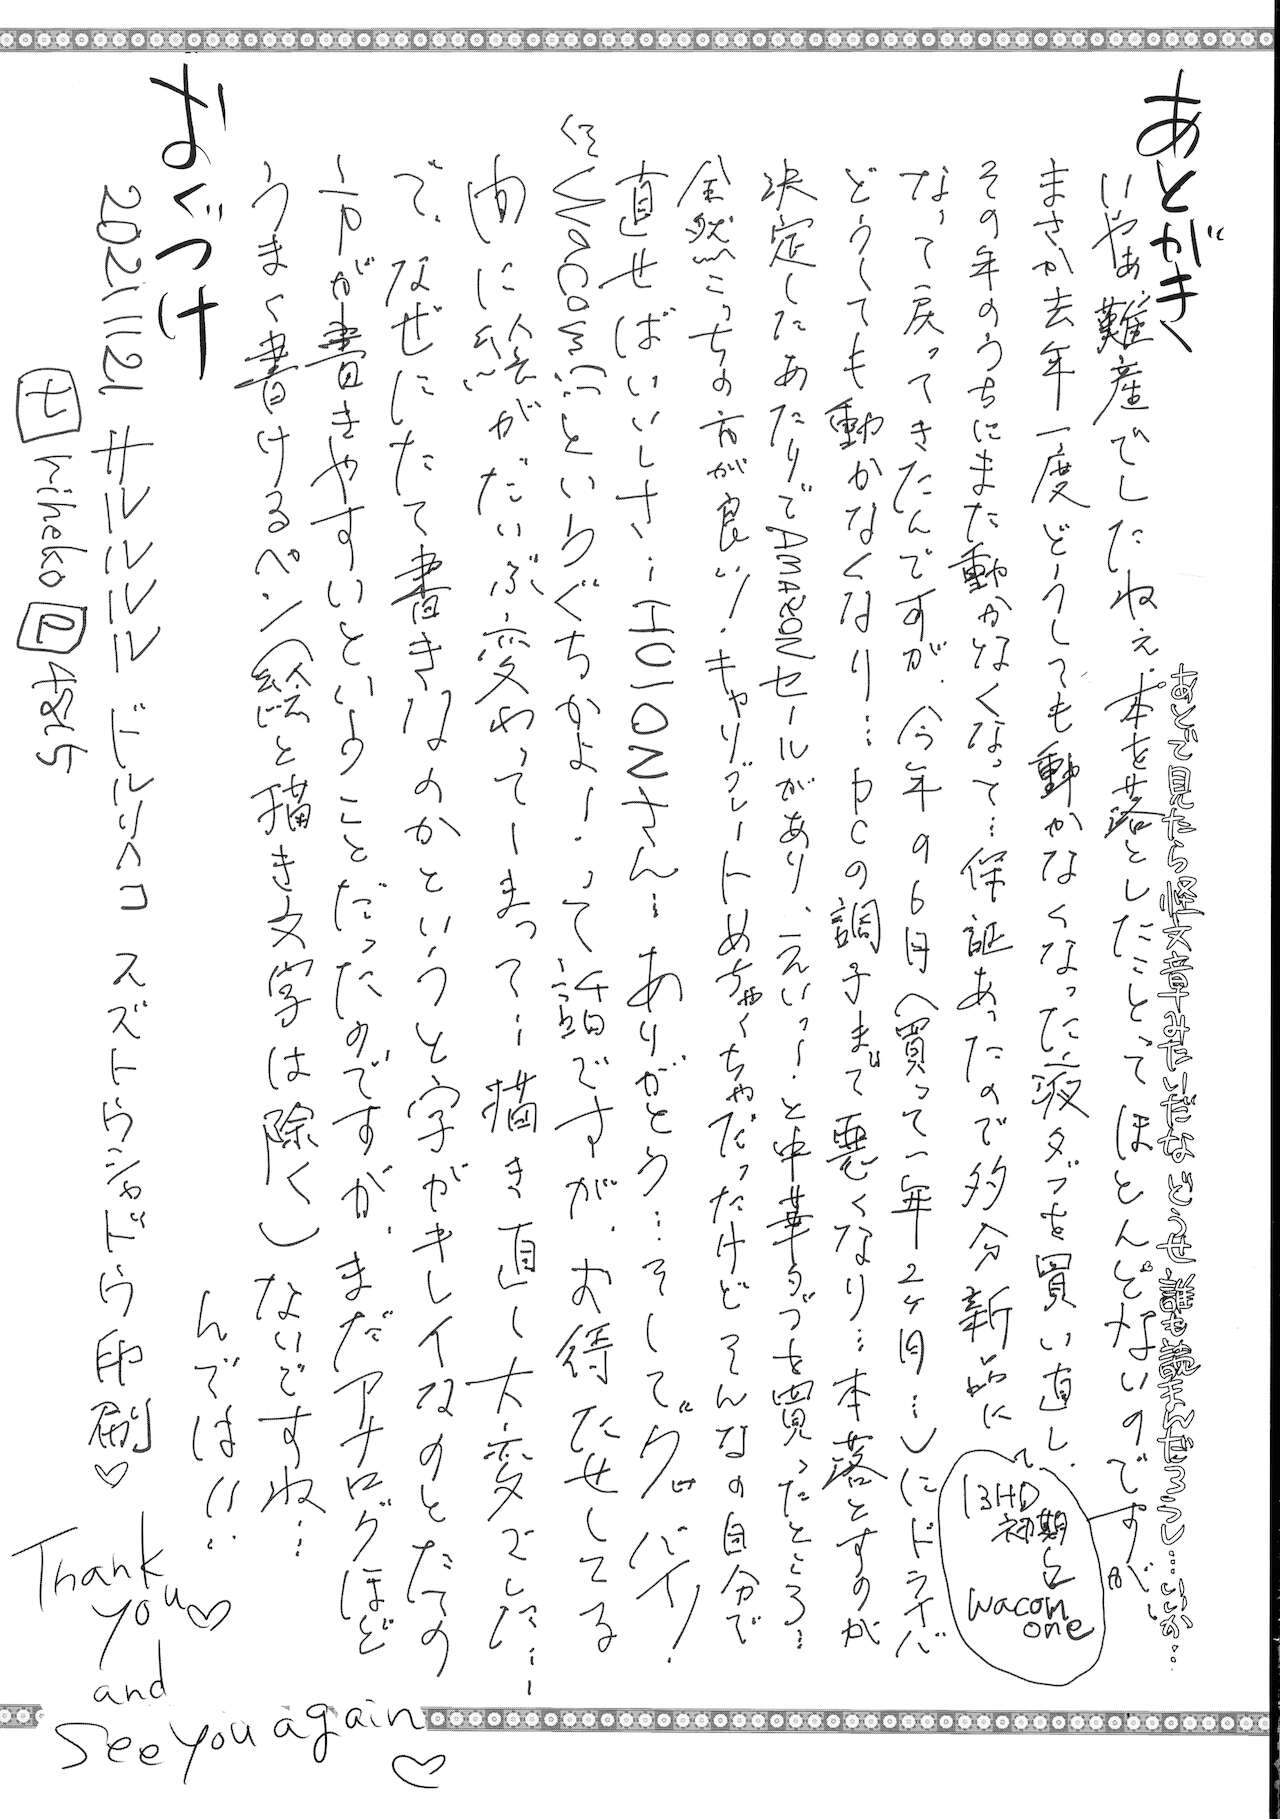 あとがき
あとで見たら怪文章みたいだな どうせ誰も読まんだろうし…いいか…
いやぁ難産でしたねぇ.本を落としたことってほとんどないのですが…
まさか去年一度どうしても動かなくなった液タブを買い直し、
その年のうちにまた動かなくなって…保証あったので多分新品に
なって戻ってきたんですが、今年の6月(買って一年2ヶ月…)にドライバ
どうしても動かなくなり…PCの調子まで悪くなり…本落とすのが
決定したあたりでAMAZONセールがあり、えいっ!と中華タブを買ったところ…
全然こっちの方が良い!キャリブレートめちゃくちゃだったけどそんなの自分で
直せばいいしさ…HUIONさん…ありがとう…そしてグッバイ!
Wacom!!というぐちかよー!って話ですが、お待たせしてる
間に絵がだいぶ変わってしまって…描き直し大変でした…
で、なぜにたて書きなのかというと字がキレイなのとたての
方が書きやすいということだったのですが、まだアナログほど
うまく書けるペン(絵と描き文字は除く)ないですね…
んでは!!
13HD
初期
と
Wacom
one
おくづけ
20211121 サルルルル ドルリヘコ スズトウシャドウ印刷♡
riheko@
Thank
you♡
and
See you again
♡